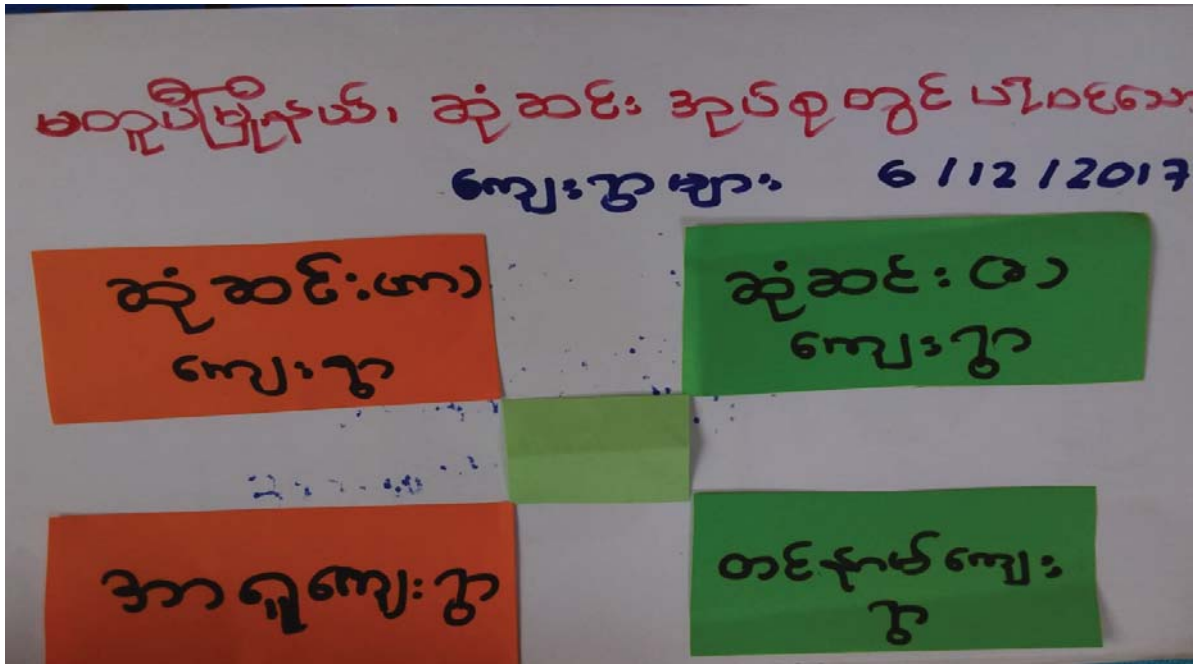 မတူပီမြို့နယ်၊ ဆုံဆင်း အုပ်စုတွင် ပါဝင်သော
ကျေးရွာများ 6/12/2017
ဆုံဆင်း(က)
ကျေးရွာ
ဆုံဆင်း(ခ)
ကျေးရွာ
အာရူကျေးရွာ
တင်နမ်ကျေး
ရွာ